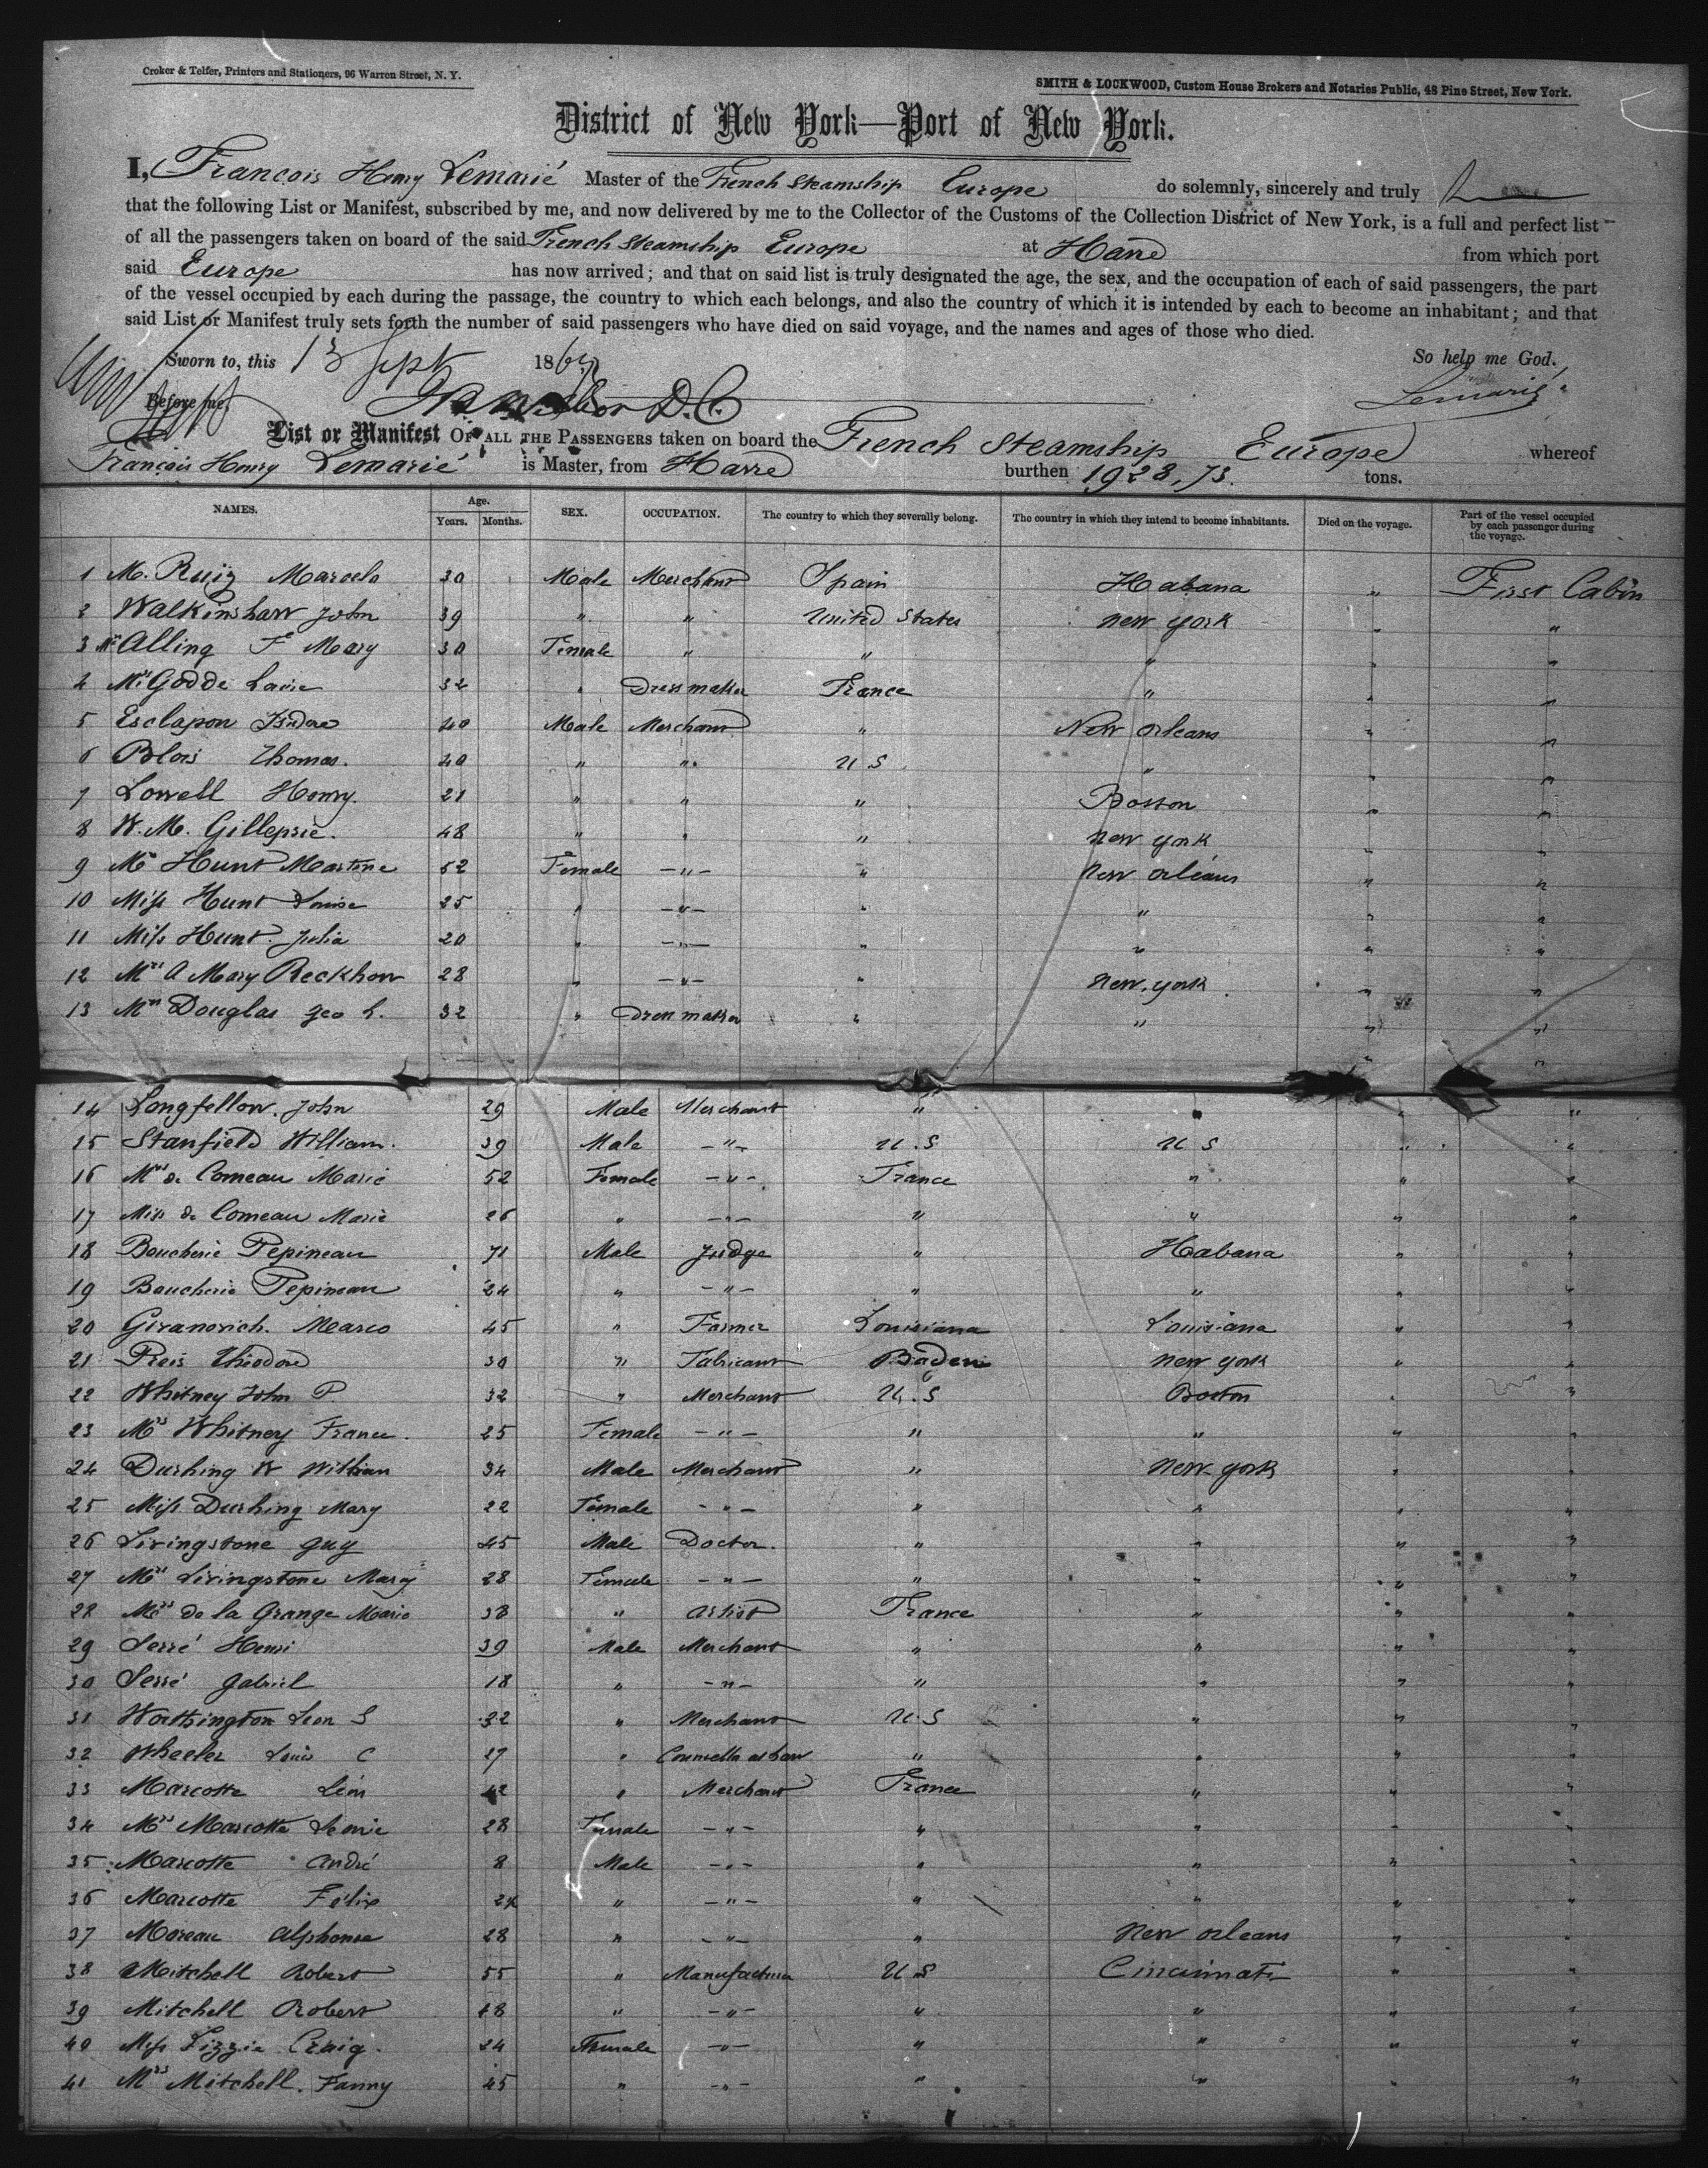 Croker & Telfer, Printers and Stationers, 96 Warren Street, N. Y.
SMITH & LOCKWOOD, Custom House Brokers and Notaries Public, 48 Pine Street, New York.
District of New York—Port of New York.
I, Francois Henry Lemarié Master of the French Steamship Europe do solemnly, sincerely and truly
that the following List or Manifest, subscribed by me, and now delivered by me to the Collector of the Customs of the Collection District of New York, is a full and perfect list
of all the passengers taken on board of the said French Steamship Europe at Havre from which port
said Europe has now arrived; and that on said list is truly designated the age, the sex, and the occupation of each of said passengers, the part
of the vessel occupied by each during the passage, the country to which each belongs, and also the country of which it is intended by each to become an inhabitant; and that
said List or Manifest truly sets forth the number of said passengers who have died on said voyage, and the names and ages of those who died.
Sworn to, this 13 Sept 186 So help me God.
Before me, D.C. Lemarié
List or Manifest OF ALL THE PASSENGERS taken on board the French Steamship Europe whereof
François Henry Lemarié is Master, from Havre burthen 1928,73. tons.
NAMES. Age. Years. Months. SEX. OCCUPATION. The country to which they severally belong. The country in which they intend to become inhabitants. Died on the voyage. Part of the vessel occupied by each passenger during the voyage.
1 M. Ruiz Marcelo 30 Male Merchant Spain Habana " First Cabin
2 Walkinshaw John 39 " " United States New York " "
3 Alling F Mary 30 Female " " " " "
4 Mrs Godde 32 " Dressmaker France " " "
5 Esclapon Isidore 40 Male Merchant " New Orleans " "
6 Blois Thomas. 40 " " U S " " "
7 Lowell Henry. 21 " " " Boston " "
8 W. M. Gillepsie. 48 " " " New York " "
9 Hunt 52 Female -"- " New Orléans " "
10 Miss Hunt Louise 25 " -"- " " " "
11 Miss Hunt. Julia 20 " -"- " " " "
12 Mrs A Mary Reckhow 28 " -"- " New York " "
13 Mrs Douglas Geo L. 32 " Dress maker " " " "
14 Longfellow. John 29 Male Merchant " " " "
15 Stanfield William. 39 Male -"- U.S U S " "
16 Mrs de Comeau Marie 52 Female -"- France " " "
17 Miss de Comeau Marie 26 " -"- " " " "
18 Boucherie Pepineau 71 Male Judge " Habana " "
19 Boucherie Pepineau 24 " -"- " " " "
20 Givanovich. Marco 45 " Farmer Louisiana Louisiana " "
21 Preis Théodore 30 " Fabricant Baden New York " "
22 Whitney John P. 32 " Merchant U.S Boston " "
23 Mrs Whitney 25 Female -"- " " " "
24 Durhing W William 34 Male Merchant " New York " "
25 Miss Durhing Mary 22 Female -"- " " " "
26 Livingstone Guy 45 Male Doctor. " " " "
27 Mrs Livingstone Mary 28 Female -"- " " " "
28 Mrs de la Grange Marie 38 " Artist France " " "
29 Serré Henri 39 Male Merchant " " " "
30 Serré Gabriel 18 " -"- " " " "
31 Worthington Leon S 32 " Merchant U.S " " "
32 Wheeler Louis C 27 " " " " "
33 Marcotte Léon 42 " Merchant France " " "
34 Mrs Marcotte 28 Female -"- " " " "
35 Marcotte André 8 Male -"- " " " "
36 Marcotte Félix " -"- " " " "
37 Moreau Alphonse 28 " -"- " New Orleans " "
38 Mitchell Robert 55 " Manufacturer U S Cincinnati " "
39 Mitchell Robert 18 " -"- " " " "
40 Miss Lizzie Craig. 24 Female -"- " " " "
41 Mrs Mitchell. Fanny 45 " -"- " " " "